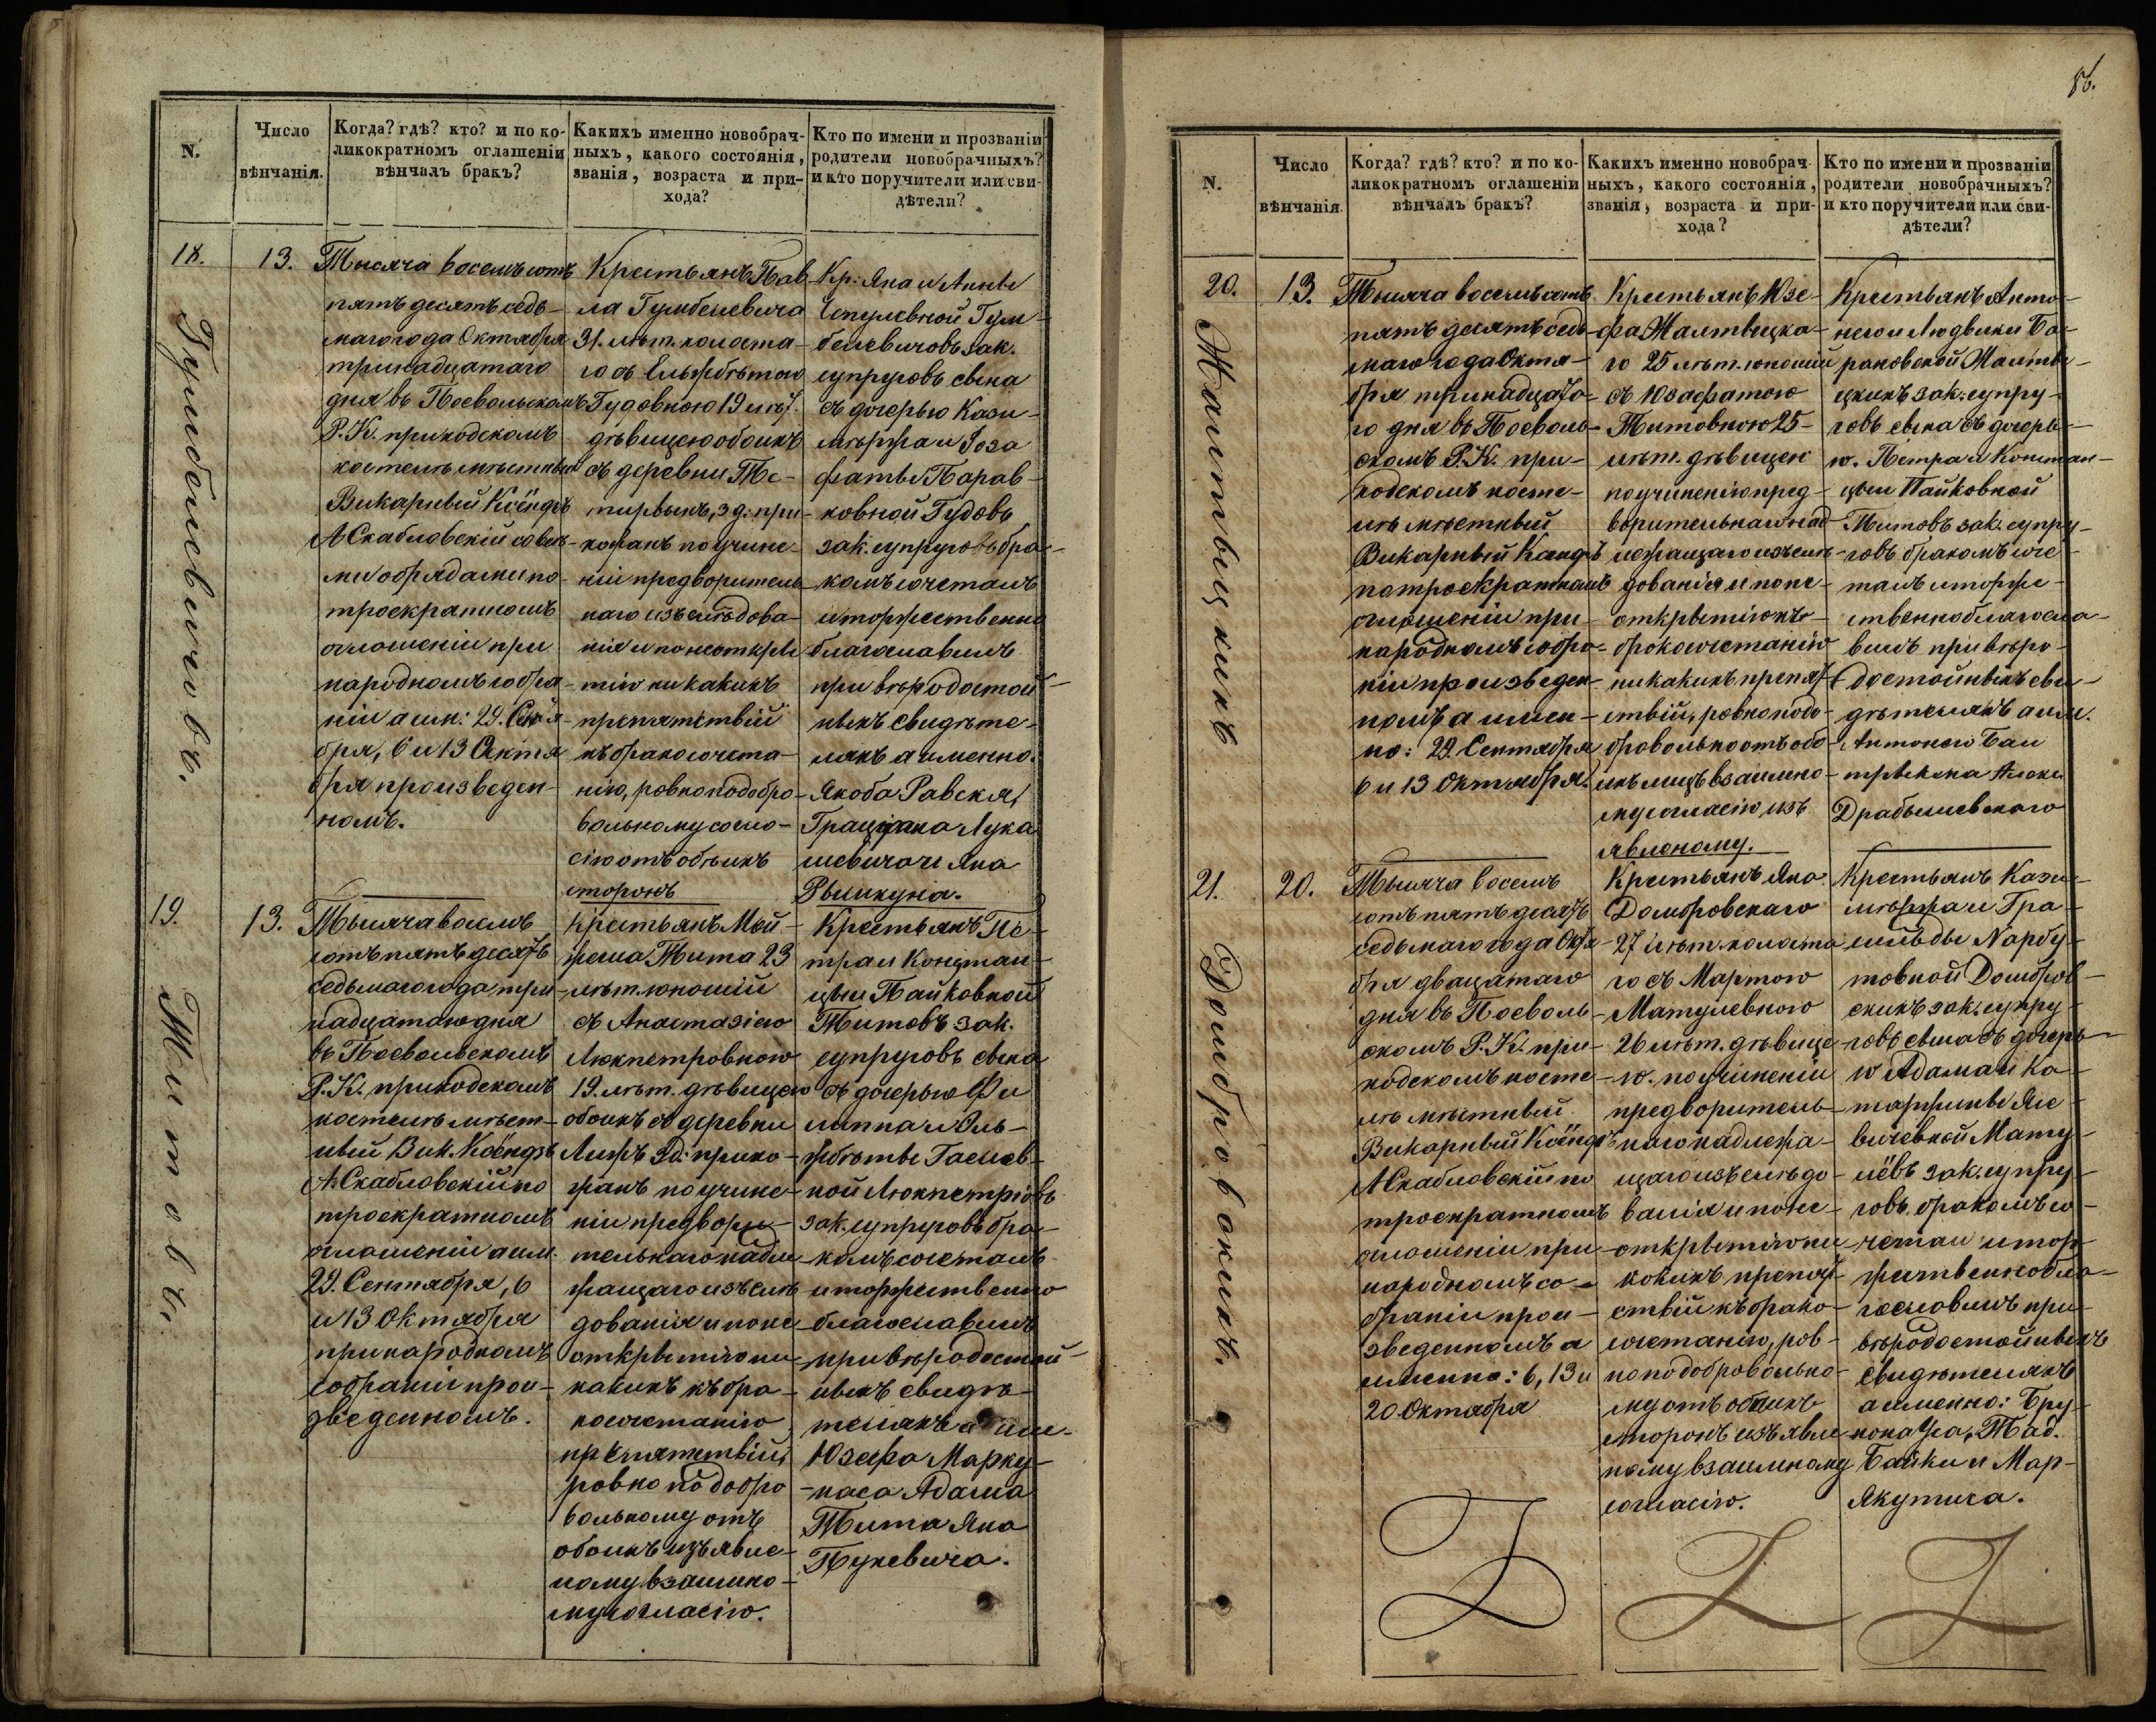 N.
Число
вѣнчанія.
Когда? гдѣ? кто? и по ко-
ликократномъ оглашеніи
вѣнчалъ бракъ?
Какихъ именно новобрач-
ныхъ, какого состоянія,
званія, возраста и при-
хода?
Кто по имени и прозваніи
родители новобрачныхъ?
и кто поручители или сви-
дѣтели?
18.
Гумбелевичовъ.
13.
Тысяча восемъ сотъ
пятъдесятъ седь-
маго года Октября
тринадцатаго
дня въ Посвольскомъ
Р. К. приходскомъ
костелѣ мѣстный
Викарный Ксёндзъ
А Скабловскій со всѣ-
ми обрядами по
троекратномъ
оглошеніи при
народномъ собра-
ніи
бря, 6 и 13 Октя
бря произведен-
номъ.
Крестьянъ Пав
ла Гумбелевича
31. лѣт. холоста-
го съ Ельжбѣтою
Гудовною 19 лѣт.
дѣвицею обоихъ
съ деревни Те-
тирвынъ, з д: при-
хожанъ по учине-
ніи предворитель
наго изъслѣдова-
нія и понеоткры
тію никакихъ
препятствій
къ бракосочета-
нію, ровно подобро-
вольному согло-
сію отъ обѣихъ
сторонъ
Кр: Яна и Анны
Гум-
белевичовъ зак.
супруговъ сына
съ дочерью Кази-
мѣржа и Іоза
фаты Парав-
ковной Гудовъ
зак. супруговъ бра-
комъ сочеталъ
и торжественно
благославилъ
при вѣродостой-
ныхъ свидѣте-
ляхъ а именно:
Якоба Равска,
Граціяна Лука
шевича и Яна
Рымкуна.
19.
Титовъ.
13.
Тысяча восемъ
сотъ пятъ десятъ
седьмаго года три-
надцатаго дня
въ Посвольскомъ
Р. К. приходскомъ
костелѣ мѣст-
ный Вик. Ксёндзъ
А. Скабловскій по
троекратномъ
оглошеніи а им.
29. Сентября, 6
и 13 Октября
при народномъ
собраніи прои-
зведенномъ.
Крестьянъ Мой-
жеша Тита 23
лѣт. юношій
съ Анастазіею
Люкпетровною
19. лѣт. дѣвицею
обоихъ съ деревни
зд: прихо-
жанъ по учине-
ніи предвори-
тельнаго надле
жащаго изъслѣ
дованія и поне
открытію ни-
какихъ къ бра-
косочетанію
препятствій,
ровно по добро
вольному отъ
обоихъ изъявле-
ному взаимно-
му согласію.
Крестьянъ Пе-
тра и Констан-
цыи Пайковной
Титовъ зак.
супруговъ сына
съ дочерью Фи
липпа и Эль-
жбѣты
ной Люкпетровъ
зак. супруговъ бра-
комъ сочеталъ
и торжественно
благославилъ
при вѣродостой-
ныхъ свидѣ-
теляхъ а им.
Юзефа Марку-
наса Адама
Тита Яна
Пукевича.
86.
N.
Число
вѣнчанія
Когда? гдѣ? кто? и по ко-
ликократномъ оглашеніи
вѣнчалъ бракъ?
Какихъ именно новобрач-
ныхъ, какого состоянія,
званія, возраста и при-
хода?
Кто по имени и прозваніи
родители новобрачныхъ?
и кто поручители или сви-
дѣтели?
20.
13.
Тысяча восемъ сотъ
пятъ десятъ седь-
маго года Октя-
бря тринадцата-
го дня въ Посволь-
скомъ Р. К. при-
ходскомъ косте-
лѣ мѣстный
Викарный Ксендзъ
по троекратномъ
оглошеніи при
народномъ собра-
ніи произведен-
номъ а имен-
но: 29. Сентября
6 и 13 Октября.
Крестьянъ Юзе-
фа
го 25 лѣт. юношій
съ Юзафатою
Титовною 25-
лѣт. дѣвицею
по учиненію пред-
ворительнаго над-
лежащаго изъслѣ-
дованія и поне-
открытію къ
бракосочетанію
никакихъ препят-
ствій, ровно подо-
бровольно отъ обо-
ихъ лицъ взаимно-
му согласію изъ
явленому.
Крестьянъ Анто-
него и Людвики Ба-
рановской
зак: супру-
говъ сына съ дочерь-
ю. Петра и Констан-
цыи Пайковной
Титовъ зак. супру-
говъ бракомъ соче-
талъ и торже-
ственно благосла-
вилъ при вѣро-
достойныхъ сви-
дѣтеляхъ а им.
Антонего
Драбышевскаго
21.
Домбровскихъ.
20.
Тысяча восемъ
сотъ пятъ десятъ
седьмаго года Октя-
бря двацатаго
дня въ Посволь-
скомъ Р. К. при-
ходскомъ косте-
лѣ мѣстный
Викарный Ксёндзъ
А Скабловскій по
троекратномъ
оглошеніи при
народномъ со-
браніи прои-
зведенномъ а
именно: 6, 13 и
20. Октября
Крестьянъ Яна
Домбровскаго
27 лѣт. холоста
го съ Мартою
Матулевною
26 лѣт. дѣвице
ю. по учиненіи
предворитель-
наго надлежа-
щаго изъслѣдо-
ванія и поне-
открытію ни
какихъ препят-
ствій къ брако-
сочетанію, ров-
но подобровольно-
му отъ обоихъ
сторонъ изъявле
ному взаимному
согласію.
Крестьянъ Кази-
мѣржа и Гра-
Нарбу-
товной Домбров-
скихъ зак: супру-
говъ сына съ дочерь-
ю Адама и Ка
таржины Яле
вичевной Мату-
лёвъ зак. супру-
говъ. бракомъ со-
четал и тор-
жественно бла-
гословилъ при-
вѣродостойныхъ
свидѣтеляхъ
а именно: Бру-
Тад.
Байки и Мар-
Якутиса.